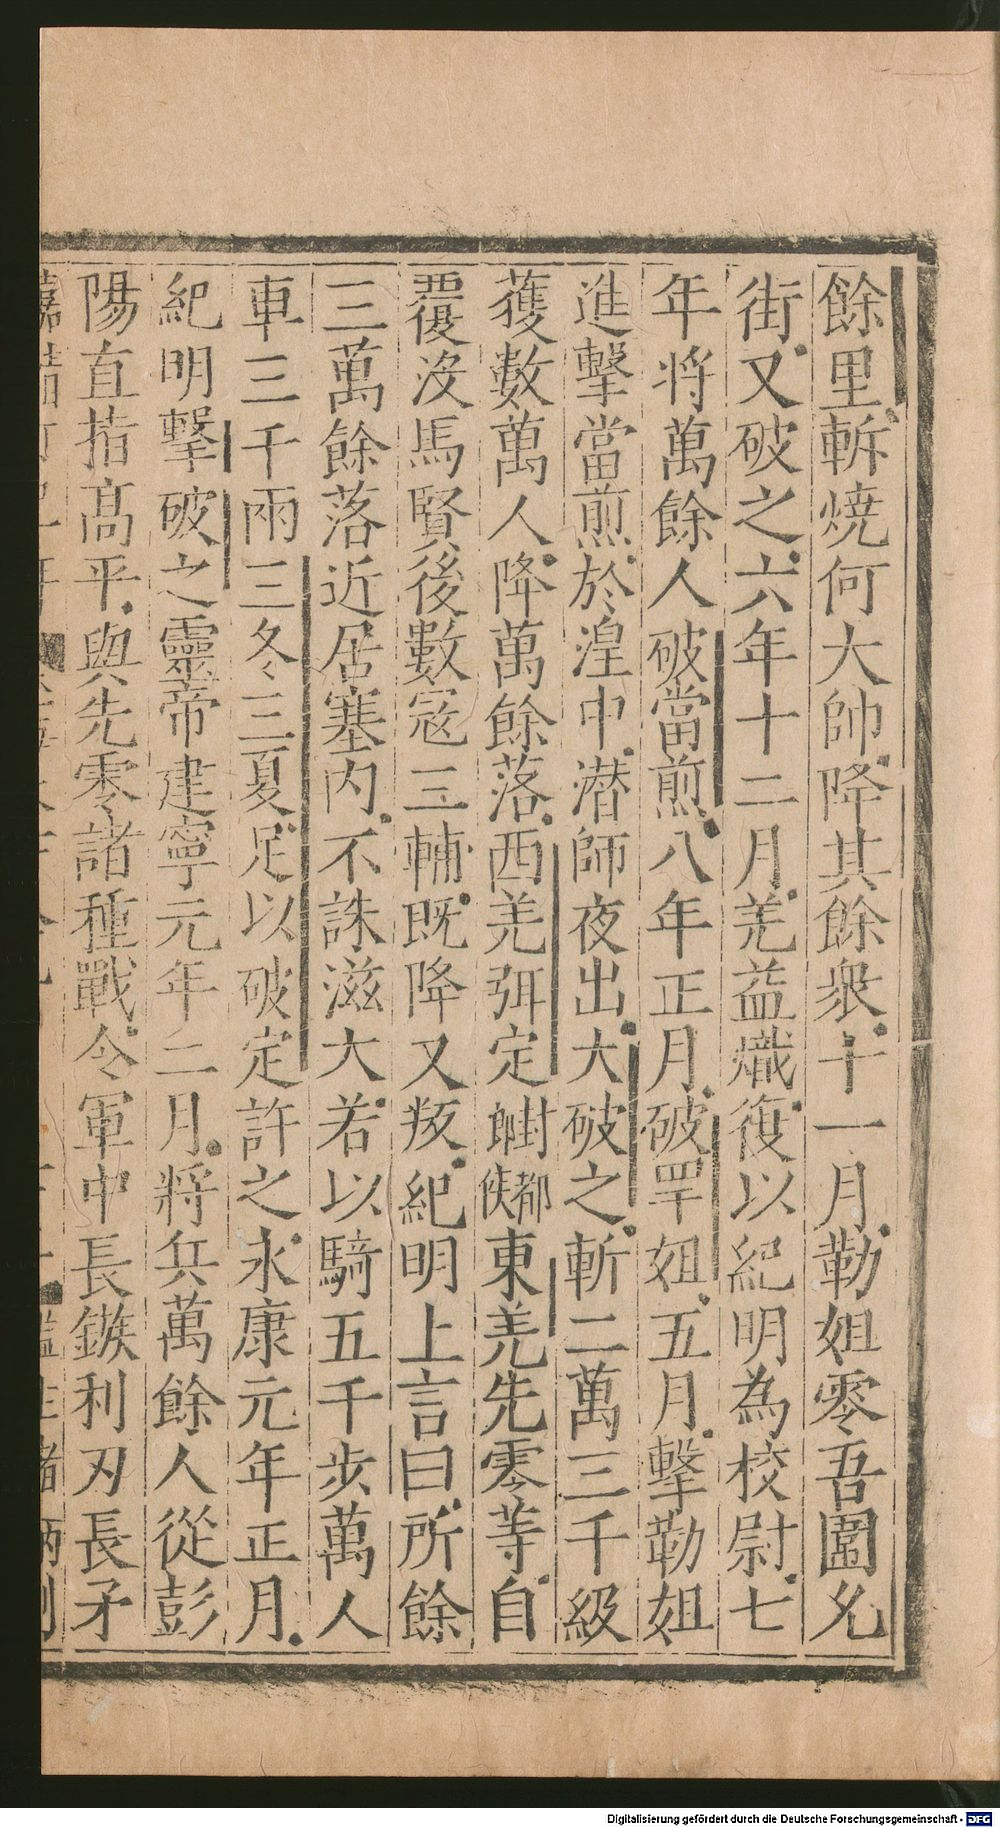 餘里斬燒何大帥降其餘衆十一月勒姐零吾圍允
街又破之六年十二月羌益熾復以紀明為校尉七
年將萬餘人破當煎八年正月破罕姐五月擊勒姐
進擊當煎於湟中潜師夜出大破之斬二萬三千級
獲數萬人降萬餘落西羌弭定封都鄉侯東羌先零等自
覆没馬賢後數寇三輔既降又叛紀明上言曰所餘
三萬餘落近居塞内不誅滋大若以騎五千步萬人
車三千兩三冬二夏足以破定許之永康元年正月
紀明擊破之靈帝建寧元年二月將兵萬餘人從彭
陽直指髙平與先零諸種戰令軍中長鏃利刃長矛
Digitalisierung gefördert durch die Deutsche Forschungsgemeinschaft - DFG